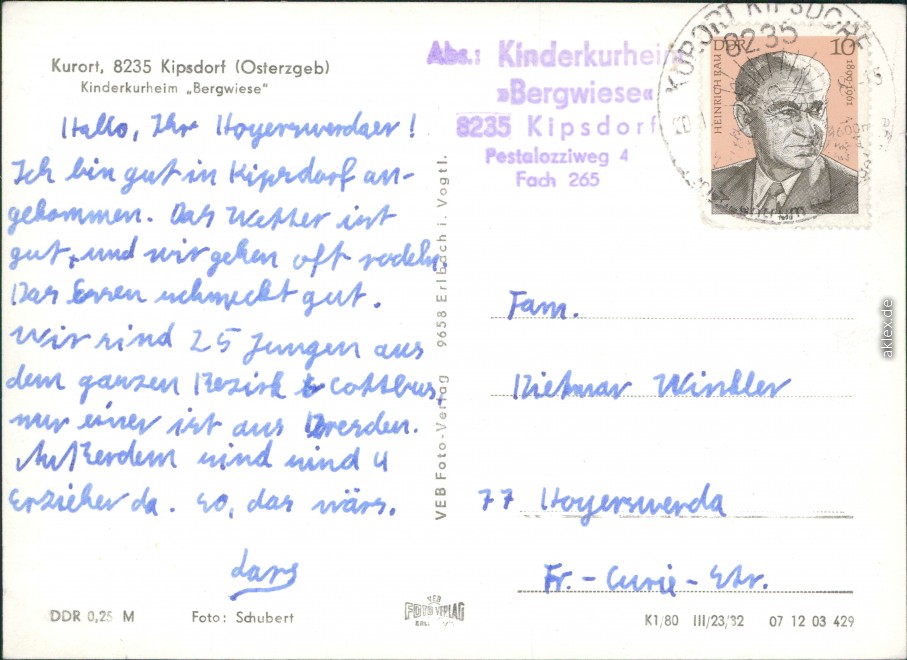 Kurort, 8235 Kipsdorf (Osterzgeb)
Kinderkurheim „Bergwiese“
Hallo, Ihr Hoyerswerdaer!
Ich bin gut in Kipsdorf an-
gekommen. Das Wetter ist
gut, und wir gehen oft rodeln.
Das Essen schmeckt gut.
Wir sind 25 Jungen aus
dem ganzen Bezirk Cottbus,
nur einer ist aus Dresden.
Außerdem sind sind 4
Erzieher da. So, das wärs.
Lars
DDR 0,25 M
Foto: Schubert
VEB Foto-Verlag 9658 Erlbach i. Vogtl.
VEB
FOTO VERLAG
Abs.: Kinderkurheim
»Bergwiese«
8235 Kipsdorf
Pestalozziweg 4
Fach 265
KURORT KIPSDORF
8235
DDR 10
HEINRICH RAU 1899-1961
Fam.
Dietmar Winkler
77 Hoyerswerda
Fr.-Curie-Str.
K1/80 III/23/32 07 12 03 429
aklex.de